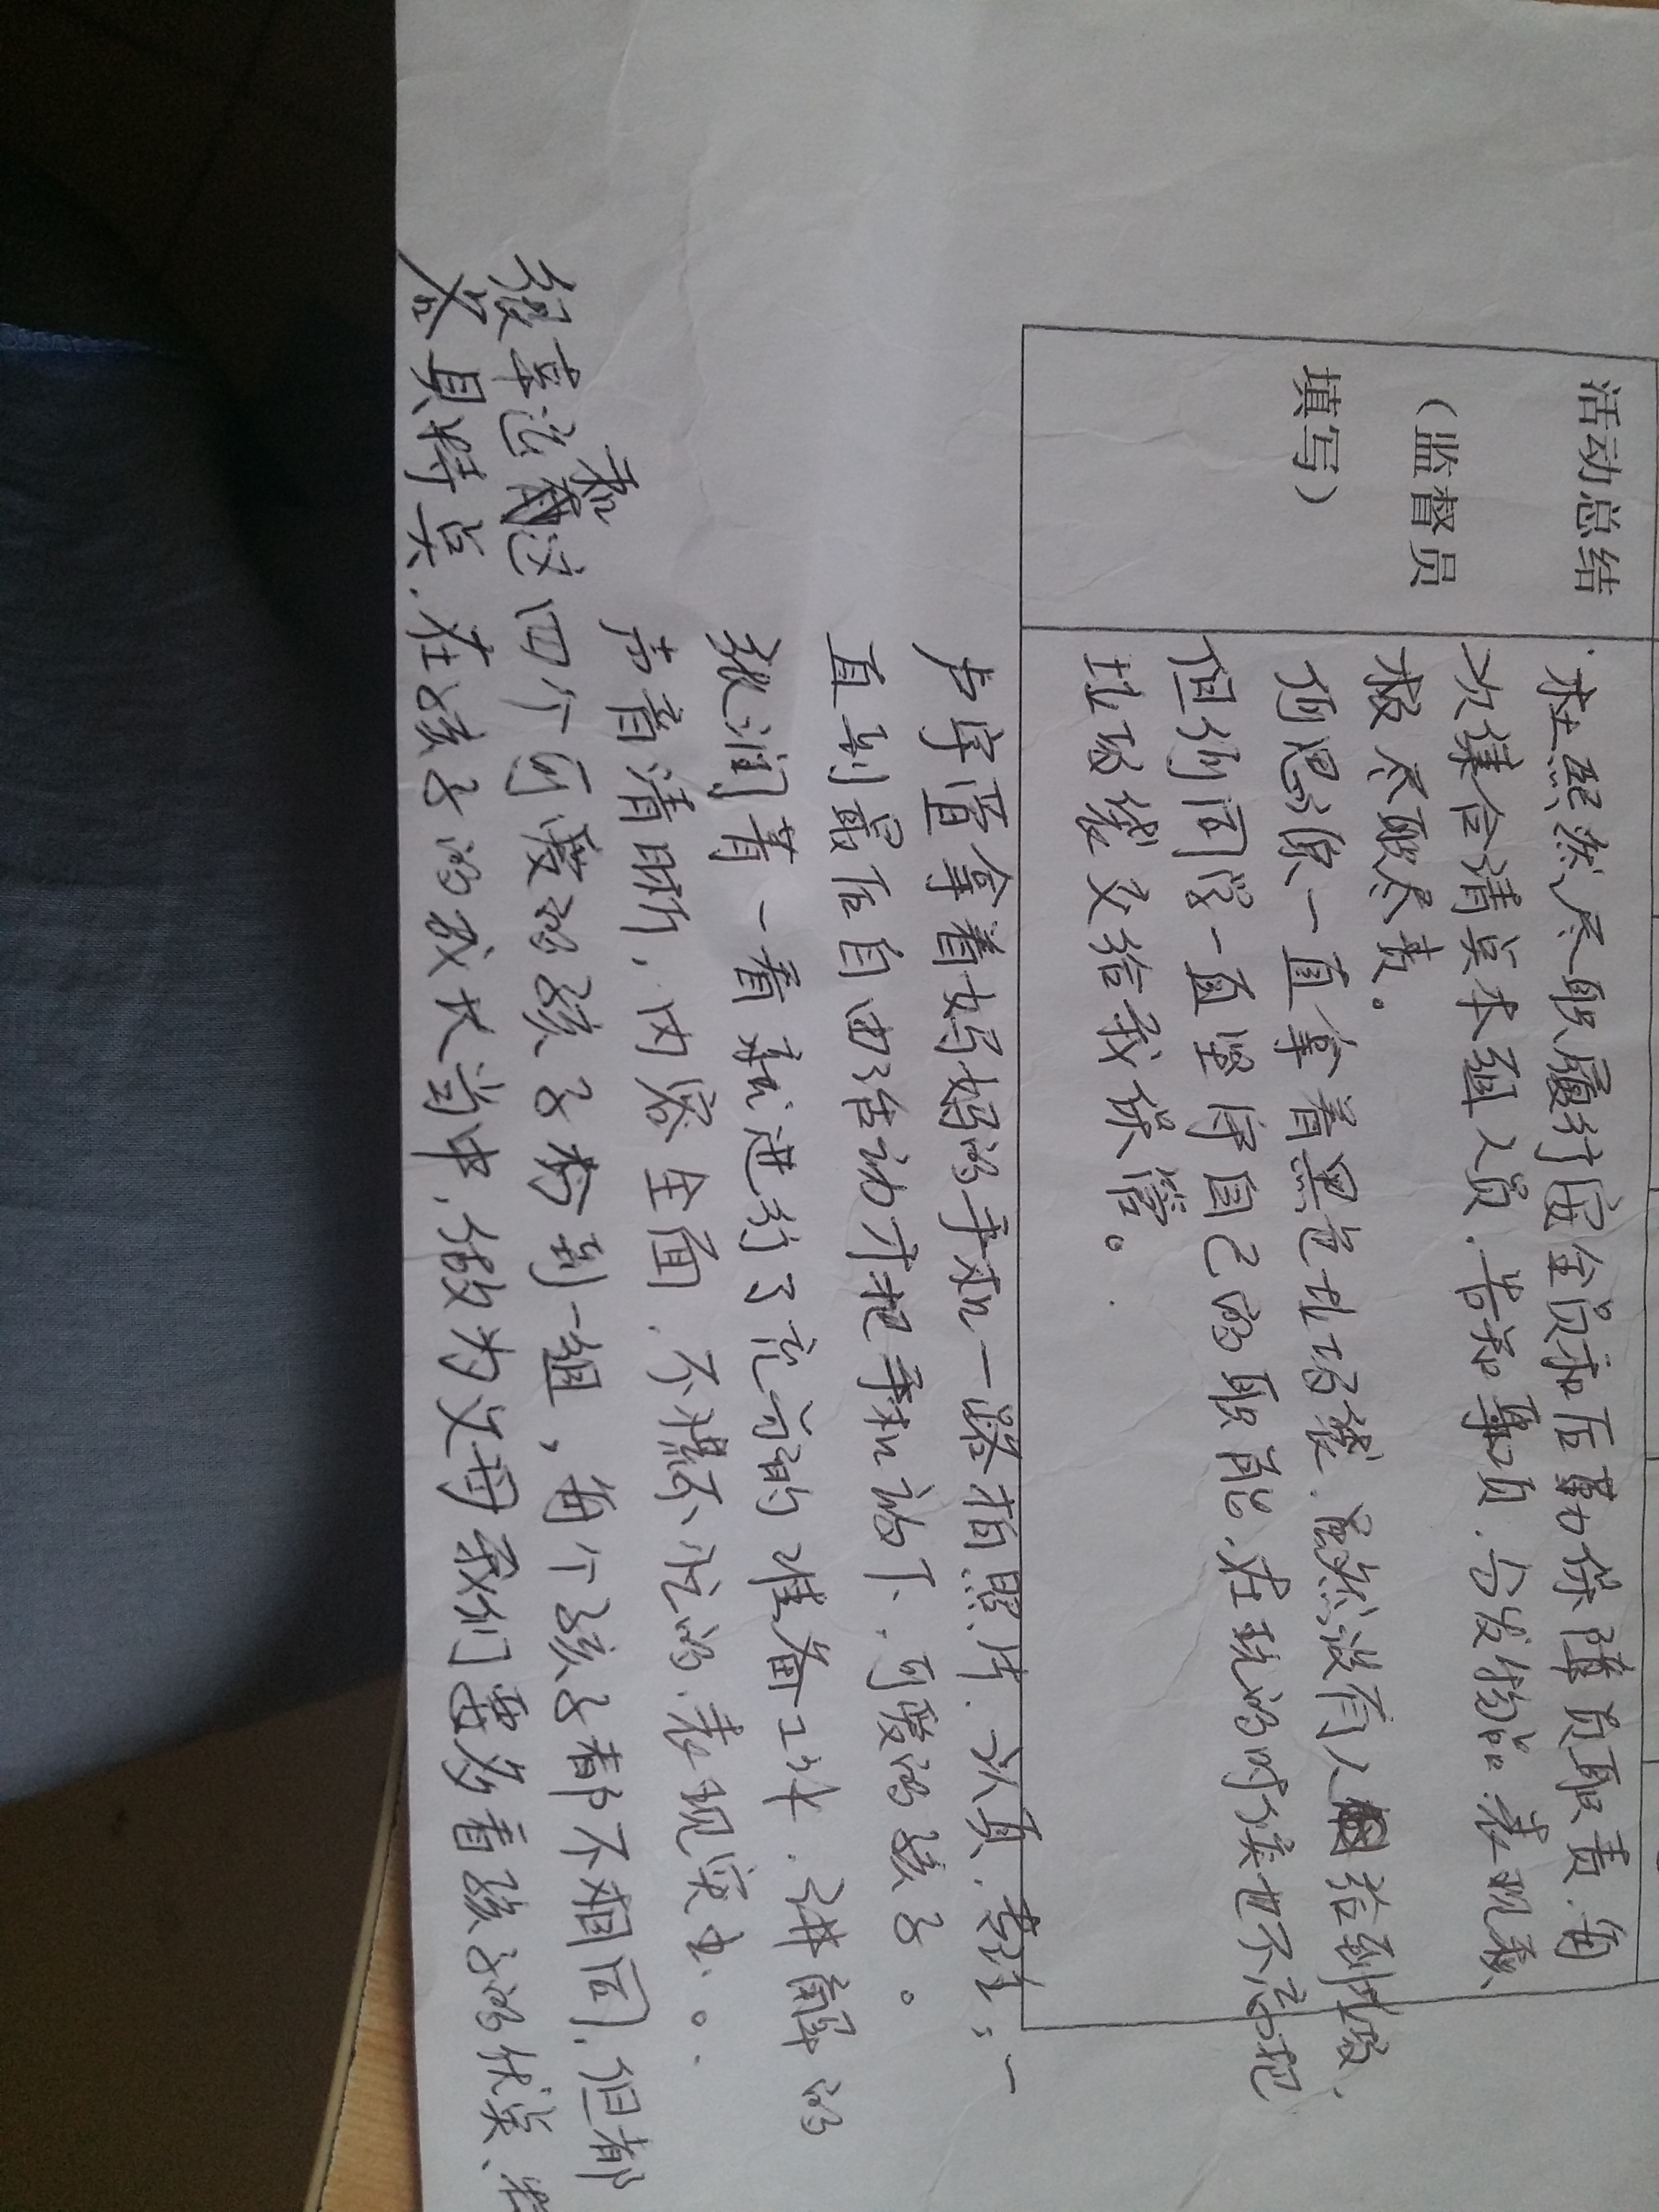 活动总结
（监督员
填写）
杜熙然尽职履行安全员和后勤保障员职责.每
次集合清点本组人员.告知事项.分发物品.表现积
极尽职尽责。
何思源一直拿着黑色垃圾袋.虽然没有人给到垃圾.
但何同学一直坚守自己的职能.在玩的时候也不忘把
垃圾袋交给我保管。
卢宇萱拿着妈妈的手机一路拍照片.认真.专注；一
直到最后自由活动才把手机放下.可爱的孩子。
张润菁一看就进行了充分的准备工作.讲解的
声音清晰，内容全面.不慌不忙的.表现突出。
很幸运和这四个可爱的孩子分到一组，每个孩子都不相同.但都
各具特点.在孩子的成长当中，做为父母我们要多看孩子的优点、